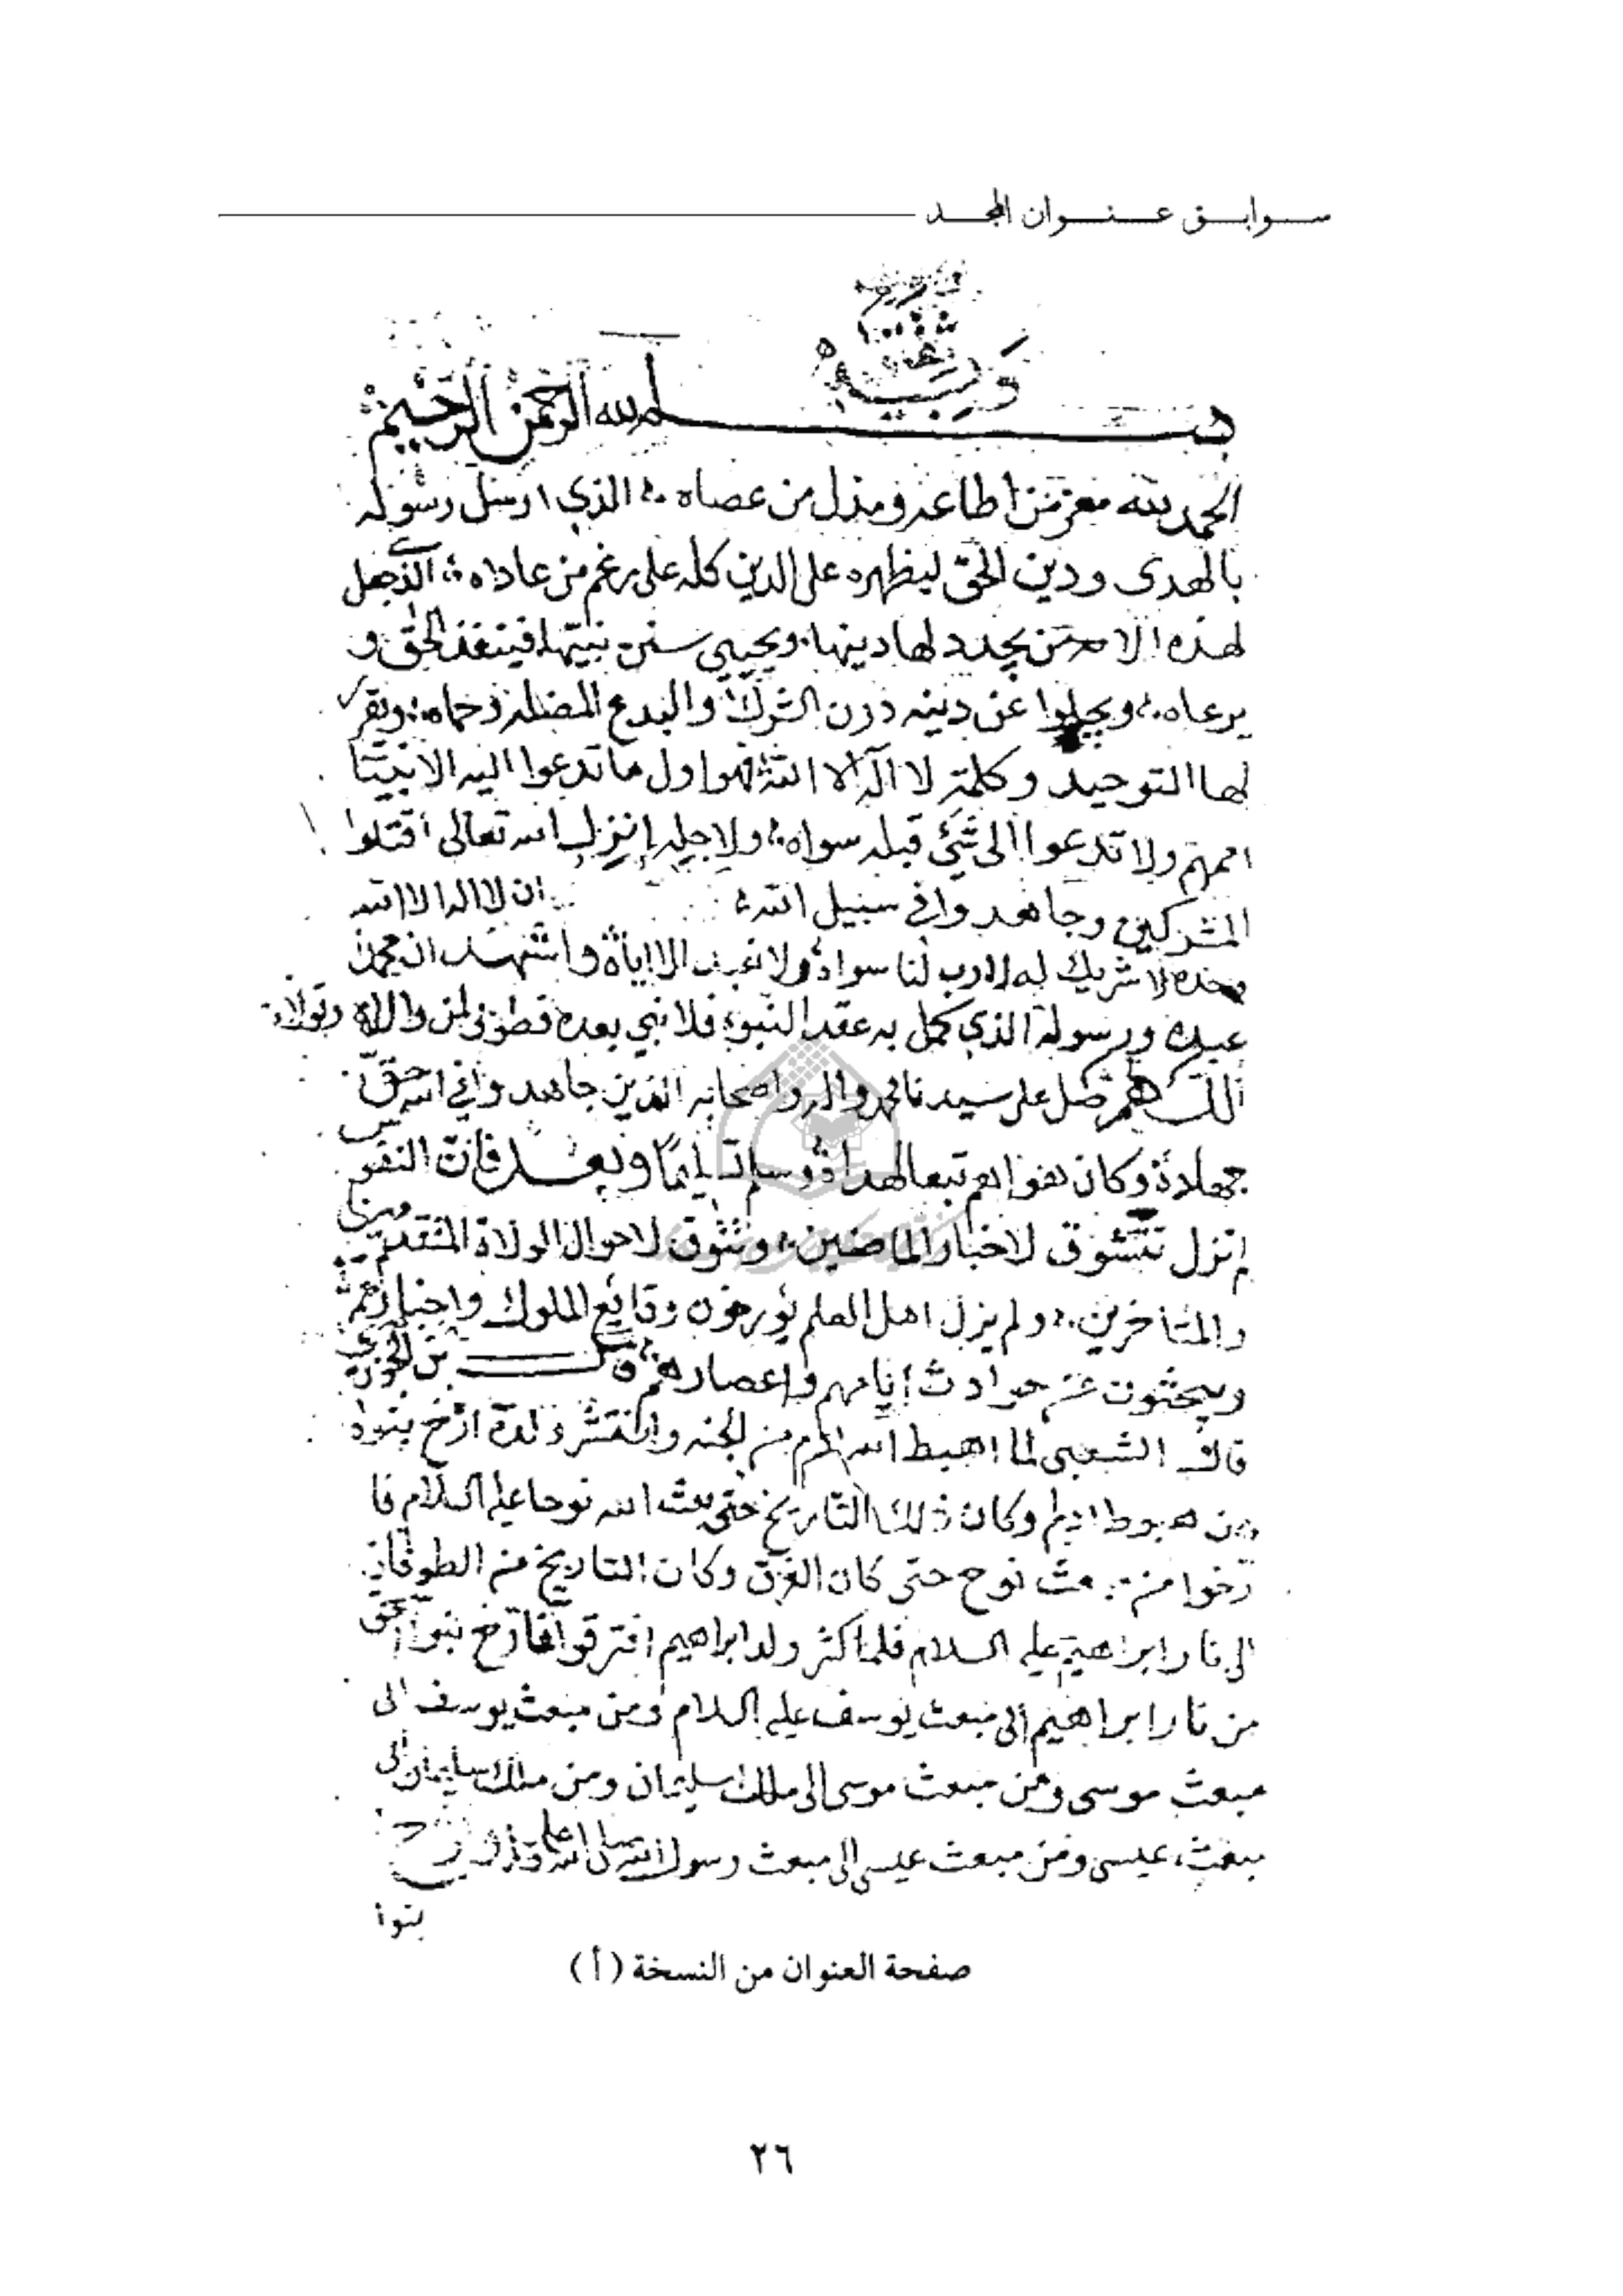 سوابق عنوان المجد
وبه
بسم الله الرحمن الرحيم
الحمد لله معز من اطاعه ومذل من عصاه الذي ارسل رسوله
بالهدى ودين الحق ليظهره على الدين كله على رغم من عاداه الذي جعل
لهذه الامة من يجدد لها دينها ويحيي سنن نبيها فينفذ الحق و
يرعاه ويجلوا عن دينه درن الشرك والبدع المضلة وحماه ويقر
لها التوحيد وكلمة لا اله الا الله فهو اول ما تدعوا اليه الانبيا
اممهم ولا تدعوا الى شئ قبله سواه ولاجله انزل الله تعالى اقتلوا
المشركين وجاهدوا في سبيل الله ان لا اله الا الله
وحده لا شريك له لا رب لنا سواه ولا نعبد الا اياه واشهد ان محمدا
عبده ورسوله الذي كمل به عقد النبوة فلا نبي بعده فطوبى لمن والاه وتولاه
اللهم صل على سيدنا محمد واله واصحابه الذين جاهدوا في الله حق
جهاده وكان هواهم تبعا لهداه وسلم تسليما وبعد فان النفوس
لم تزل تتشوق لاخبار الماضين وتتشوق لاحوال الولاة المتقدمين
والمتاخرين ولم يزل اهل العلم يؤرخون وقائع الملوك واخبارهم
ويبحثون عن حوادث ايامهم واعصارهم قال بن الجوزي
قال الشعبي لما اهبط الله ادم من الجنه وانتشر ولده ارخ بنوه
من هبوط ادم وكان ذلك التاريخ حتى بعث الله نوحا عليه السلام فا
رخوا من مبعث نوح حتى كان الغرق وكان التاريخ من الطوفان
الى نار ابراهيم عليه السلام فلما كثر ولد ابراهيم افترقوا فارخ بنوا اسحق
من نار ابراهيم الى مبعث يوسف عليه السلام ومن مبعث يوسف الى
مبعث موسى ومن مبعث موسى الى ملك سليمان ومن ملك سليمان الى
مبعث عيسى ومن مبعث عيسى الى مبعث رسول الله صلى الله عليه وسلم وارخ
بنوا
صفحة العنوان من النسخة (أ)
٢٦